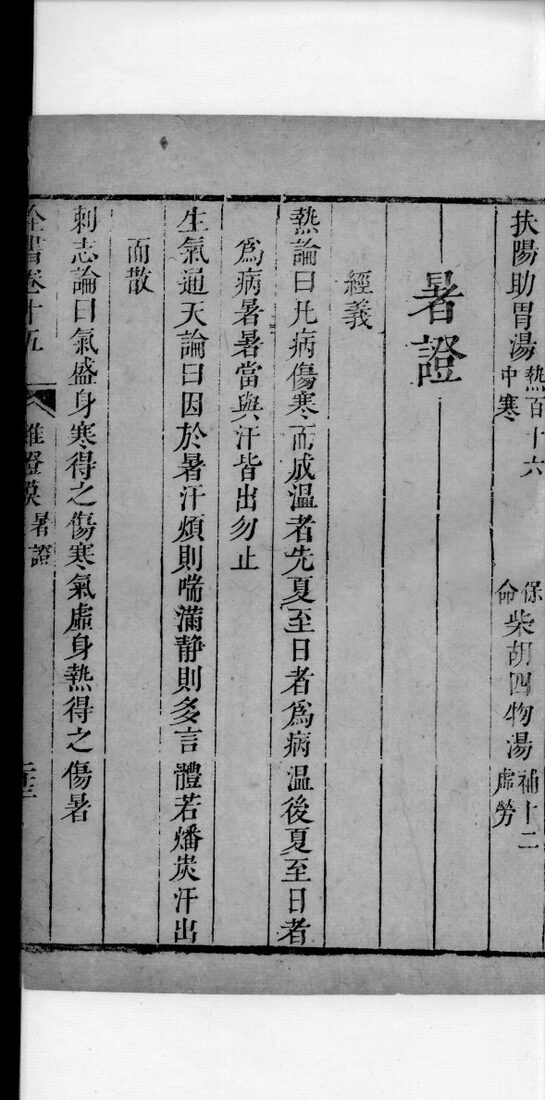 扶陽助胃湯熱百十六中寒 保命柴胡四物湯補十二虛勞
暑證
經義
熱論曰凡病傷寒而成溫者先夏至日者爲病溫後夏至日者
爲病暑暑當與汗皆出勿止
生氣通天論曰因於暑汗煩則喘滿靜則多言體若燔炭汗出
而散
刺志論曰氣盛身寒得之傷寒氣虛身熱得之傷暑
全書卷十五 雜證謨 暑證